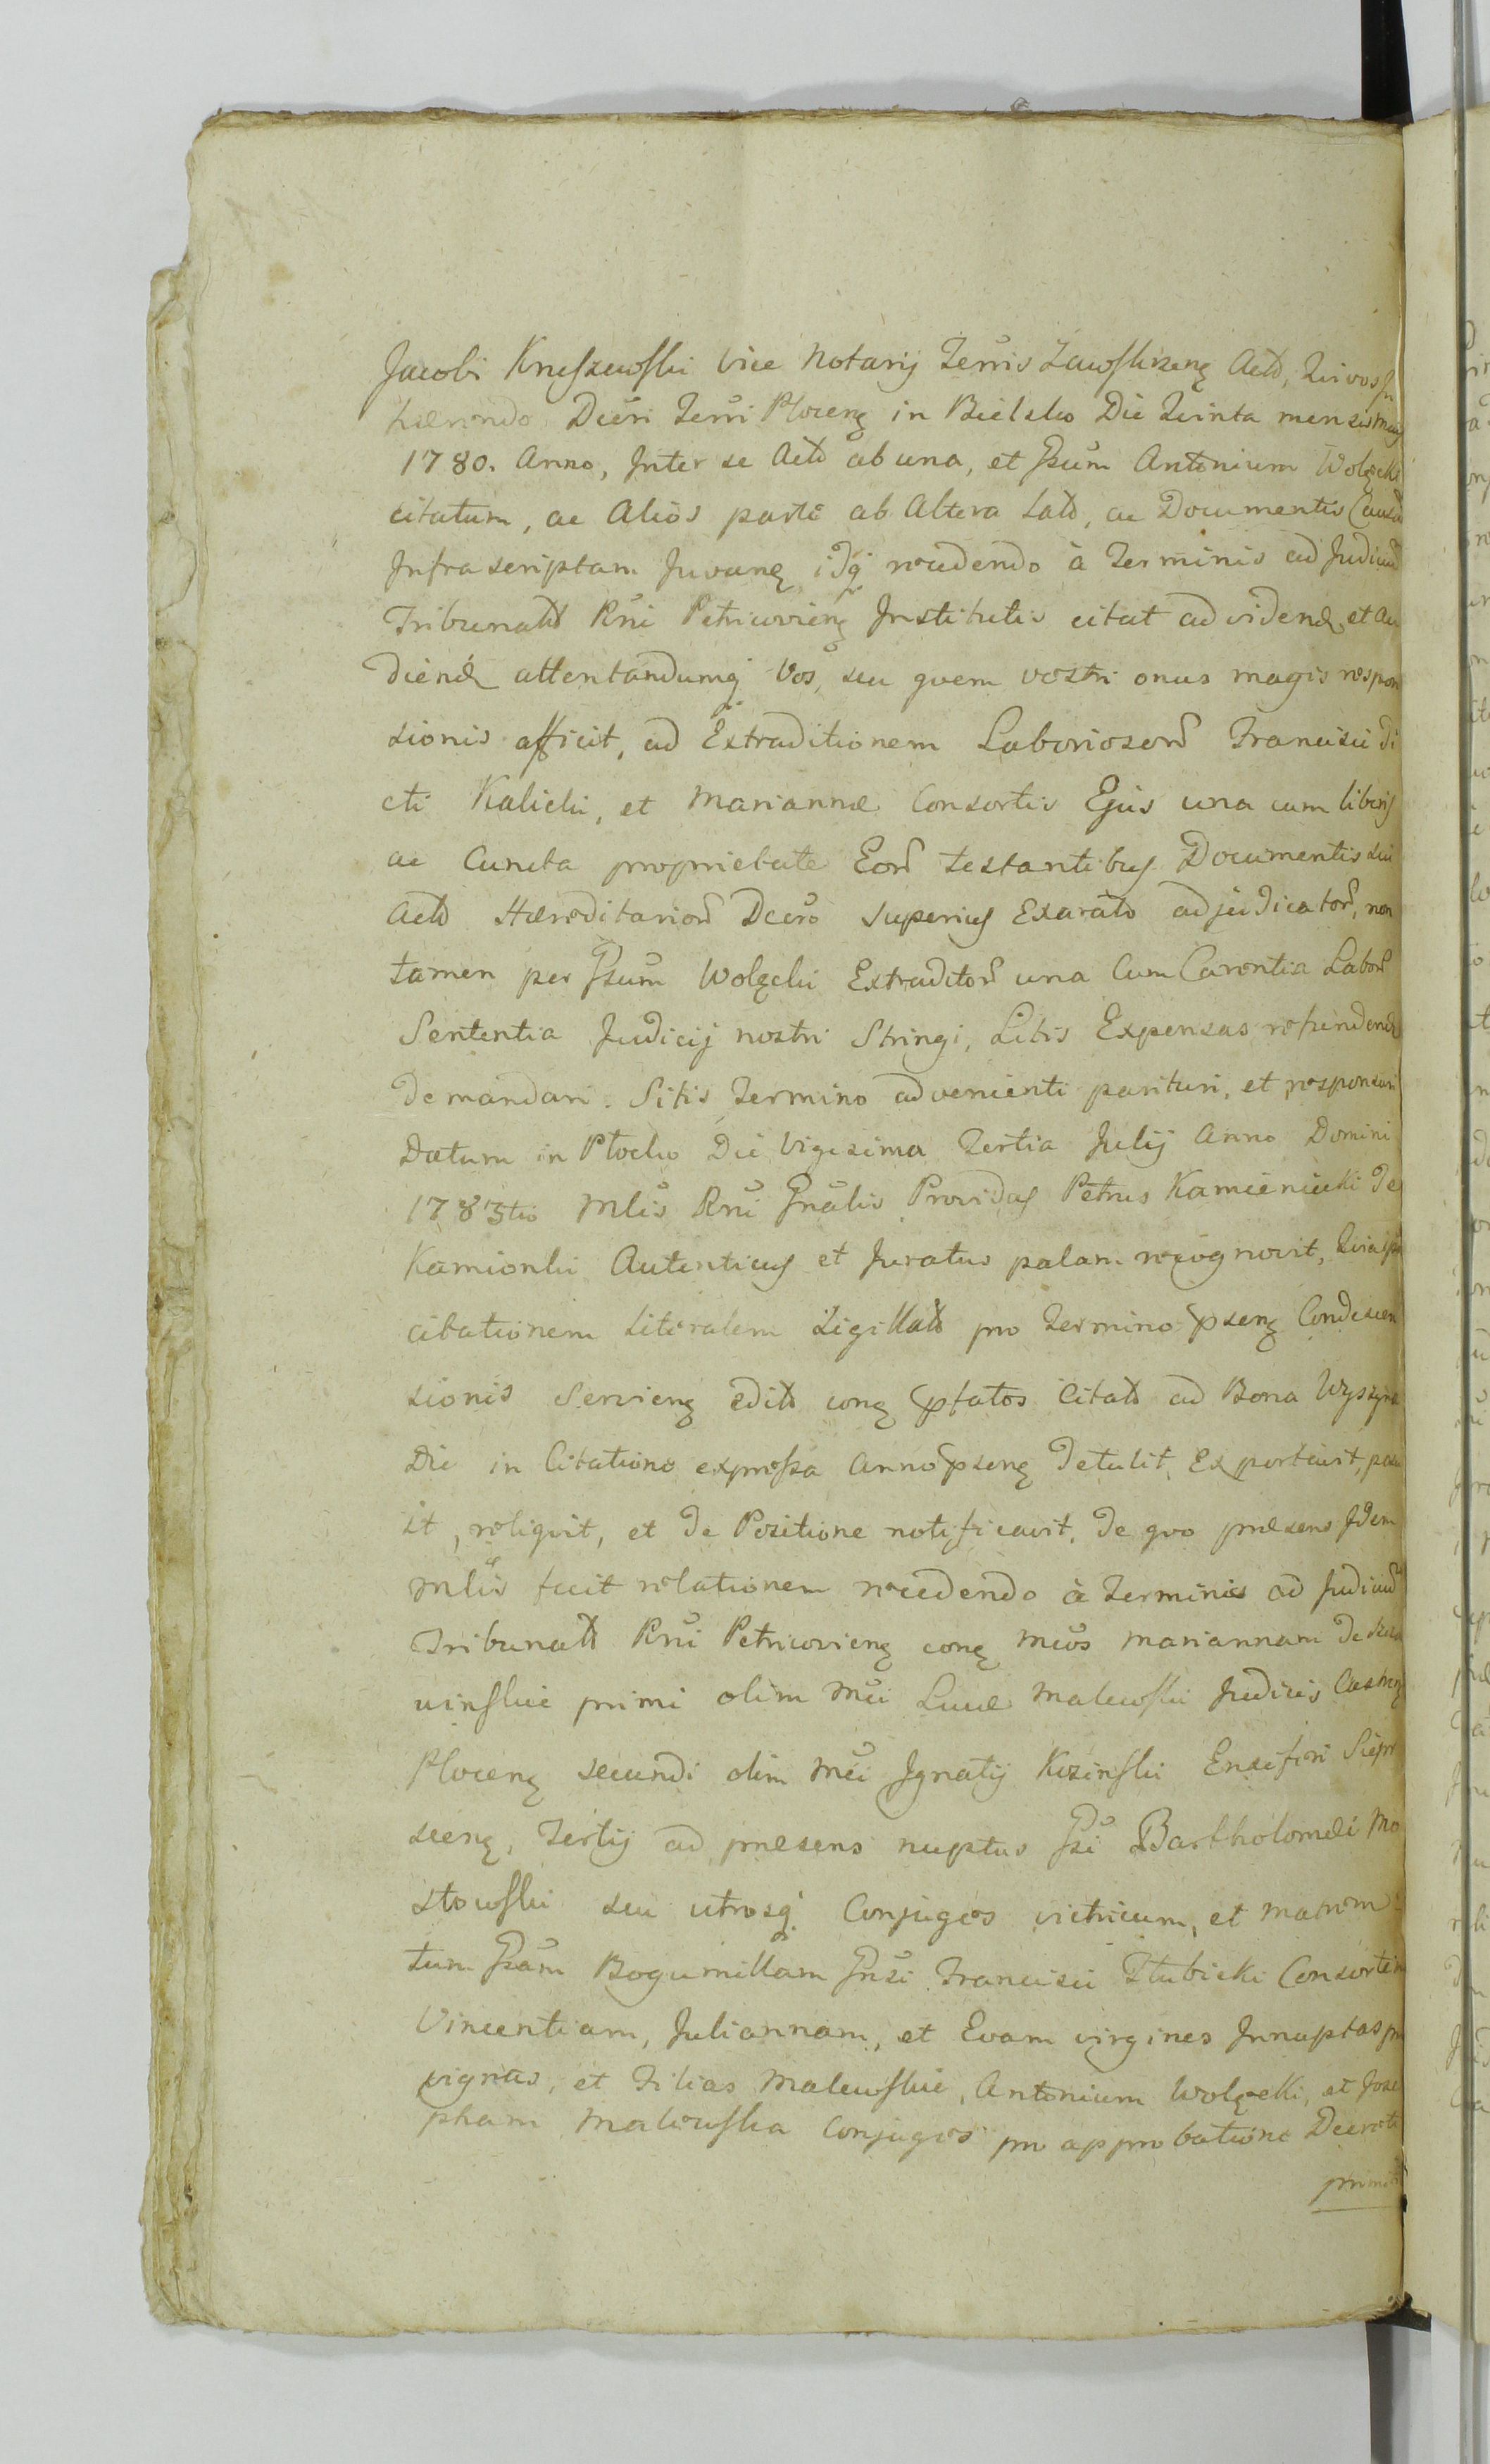 Jacobi Kruszewski Vice Notarij Terris Zawskrzeng Actō, Qui vos In
hærendo Dcēri Terri Ploceng in Bielsko Die Qvinta mensis Maij
1780. Anno, Inter se Actō ab una, et Gsum Antonium Wolęcki
citatum, ac Alios parte ab Altera Latō, ac Documentis Causam
Infrascriptam Juvang idq recedendo à Terminis ad Judiciū
Tribunatō Rni Petricovieng Institutis citat ad videnđ et Au
dienđ attentandumq Vos, seu qvem vestri onus magis respon
sionis afficit, ad Extraditionem Laboriosorū Francisci di
cti Kalicki, et Mariannæ Consortis Ejus una cum liberis
ac Cuncta proprietate Eorū testantibus Documentis sui
Actō Hæreditariorū Dcēro superius Exarato adjudicatorū, non
tamen per Gsum Wolęcki Extraditorū una Cum Carentia Laborū
Sententia Judicij nostri Stringi, Litis Expensas refundenđ
demandari. Sitis Termino advenienti parituri, et responsuri
Datum in Płocko Die Vigesima Tertia Julij Anno Domini
1783tio Mlis Rni Gnālis Providus Petrus Kamienicki de
Kamionki Autenticus et Juratus palam recognovit, Quia ipse
citationem Literalem Sigillatō pro Termino pseng Condescen
sionis Servieng editō cong pfatos Citatō ad Bona Wyszyna
Die in Citatione expressa Anno pseng detulit, Exportavit, posu
it, reliqvit, et de Positione notificavit, de qvo præsens Idem
Mlis fecit relationem recedendo à Terminis ad Judiciū
Tribunatō Rni Petricovieng cong Mcos Mariannam de
uinskie primi olim Mci Lucæ Malewski Judicis Castreng
Ploceng secundi olim Mci Ignatij Kozinski Ensiferi Sierp
sceng, Tertij ad præsens nuptus Gsi Bartholomæi Mo
stowski seu utrosq Conjuges vitricum, et matrem
tum Gsam Bogumillam Gnsi Francisci Słubicki Consortem
Vincentiam, Juliannam, et Evam virgines Innuptas pri
vignas, et Filias Malewskie, Antonium Wolęcki, et Jose
pham Malewska Conjuges pro approbatione Decreti
primi